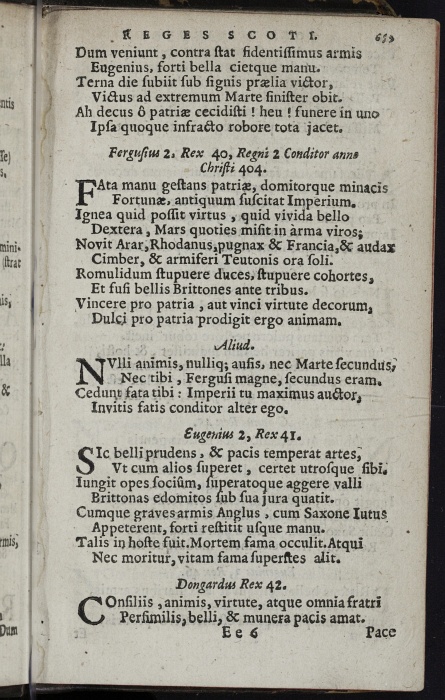 REGES SCOTI.
Dum veniunt, contra stat fidentissimus armis
Eugenius, forti bella cietque manu.
Terna die subiit sub signis prælia victor,
Victus ad extremum Marte sinister obit.
Ah decus ô patriæ cecidisti! heu! funere in uno
Ipsa quoque infracto robore tota jacet.
Fergusius 2. Rex 40, Regni 2 Conditor anno
Christi 404.
FAta manu gestans patriæ, domitorque minacis
Fortunæ, antiquum suscitat Imperium.
Ignea quid possit virtus, quid vivida bello
Dextera, Mars quoties misit in arma viros;
Novit Arar, Rhodanus, pugnax & Francia, & audax
Cimber, & armiferi Teutonis ora soli.
Romulidum stupuere duces, stupuere cohortes,
Et fusi bellis Brittones ante tribus.
Vincere pro patria, aut vinci virtute decorum,
Dulci pro patria prodigit ergo animam.
Aliud.
NVlli animis, nulliq; ausis, nec Marte secundus,
Nec tibi, Fergusi magne, secundus eram.
Cedunt fata tibi: Imperii tu maximus auctor,
Invitis fatis conditor alter ego.
Eugenius 2, Rex 41.
SIc belli prudens, & pacis temperat artes,
Vt cum alios superet, certet utrosque sibi.
Iungit opes sociûm, superatoque aggere valli
Brittonas edomitos sub sua jura quatit.
Cumque graves armis Anglus, cum Saxone Iutus
Appeterent, forti restitit usque manu.
Talis in hoste fuit. Mortem fama occulit. Atqui
Nec moritur, vitam fama superstes alit.
Dongardus Rex 42.
COnsiliis, animis, virtute, atque omnia fratri
Persimilis, belli, & munera pacis amat.
Ee 6 Pace